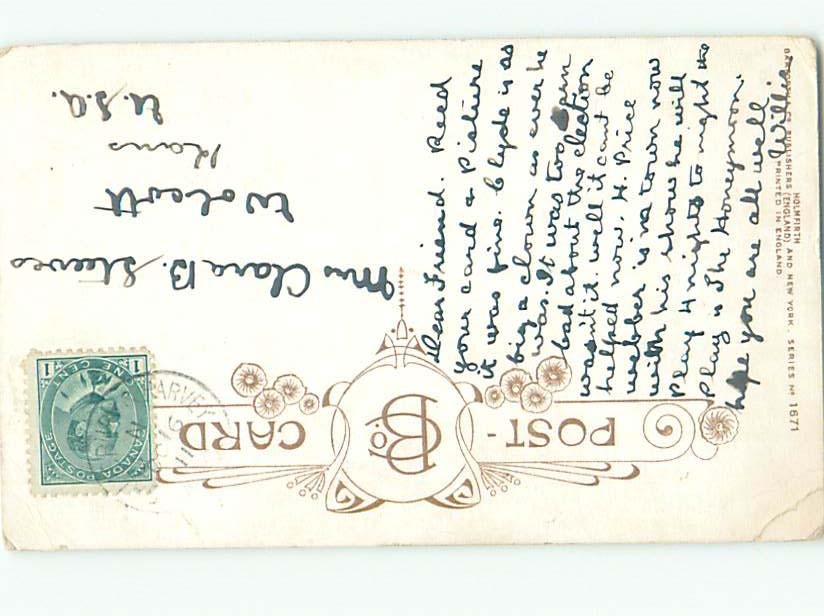 POST-
CARD
B & Co
Dear Friend. Recd
your card a Picture
it was fine. Clyde is as
big a clown as ever he
was. It was too
bad about the election
wasn't it. well it cant be
helped now. H. Price
webber is in town now
with his show he will
Play 4 nights to night the
Play is The Honeymoon.
hope you are all well
Willie
Mrs Clara B. Steeves
Wolcott
Kans
U.S.A.
HOLMFIRTH
BAMFORTH & Co PUBLISHERS (ENGLAND) AND NEW YORK. SERIES No 1671
PRINTED IN ENGLAND.
CANADA POSTAGE
1 ONE CENT 1
HARVEY
16
11